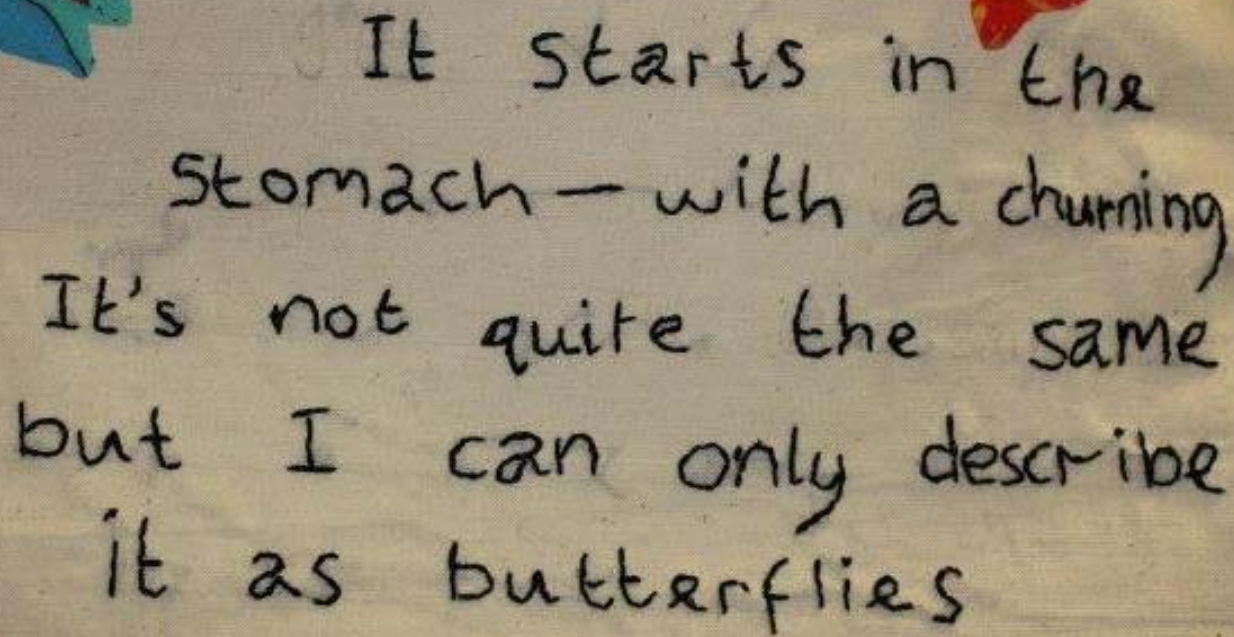 It starts in the
stomach – with a churning
It's not quite the same
but I can only describe
it as butterflies